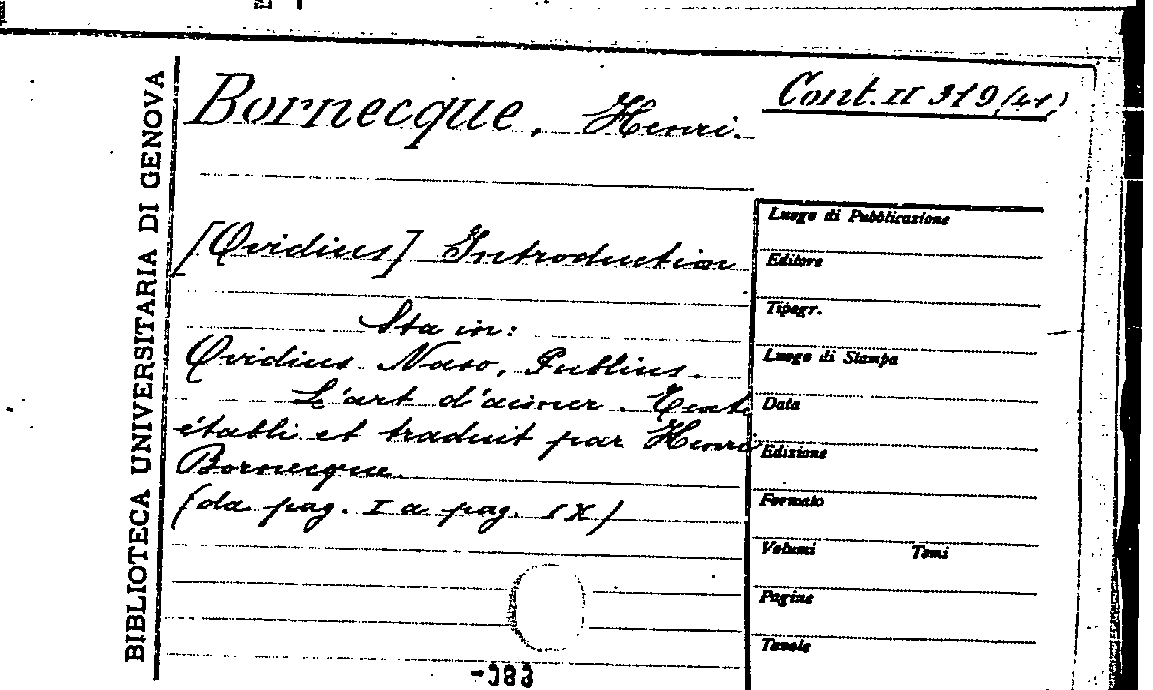 BIBLIOTECA UNIVERSITARIA DI GENOVA
Bornecque, Henri.
Cont. II 319 (41)
[Ovidius] Introduction
Sta in:
Ovidius Naso, Publius.
L'art d'aimer. Texte
établi et traduit par Henri
Bornecque.
(da pag. I a pag. IX)
Luogo di Pubblicazione
Editore
Tipogr.
Luogo di Stampa
Data
Edizione
Formato
Volumi Tomi
Pagine
Tavole